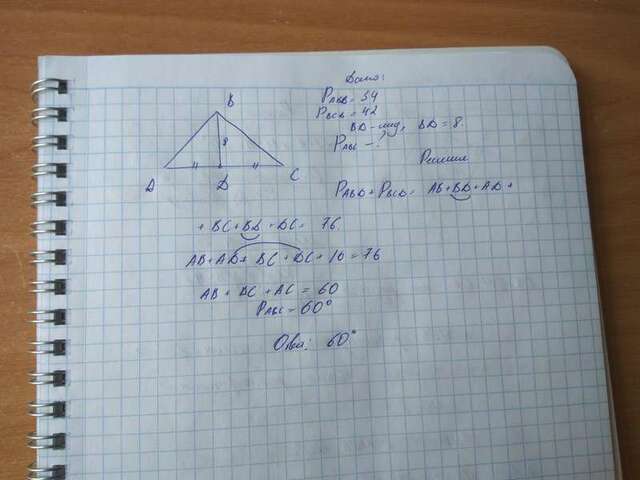 Дано:
P ABD = 34
P BCD = 42
BD - мед, BD = 8.
P ABC - ?
B
8
A
D
C
P ABD + P BCD = AB + BD + AD +
+ BC + BD + DC = 76
AB + AD + BC + DC + 16 = 76
AB + BC + AC = 60
P ABC = 60°
60°